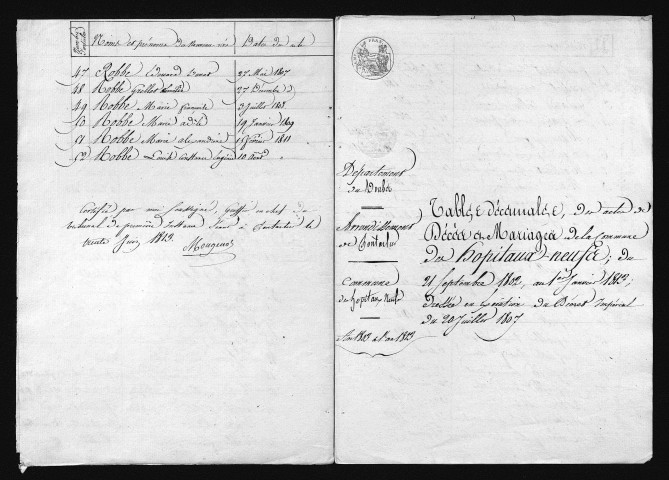 Noms et prénoms des Dates des actes
47 Robbe Edouard 27 Mai 1807
48 Robbe 27 Décembre
49 Robbe Marie françoise 3 Juillet 1808
50 Robbe Marie adèle 19 Janvier 1809
51 Robbe Marie alexandrine 1811
52 Robbe Louis 10 aout
Certifié par moi soussigné, greffier en chef du
tribunal de première instance séant à Pontarlier le
trente Juin 1813.
Mougenot
Département
du Doubs
Arrondissement
de Pontarlier
Commune
des hopitaux neufs
Tables décennales, des actes de
Décès et Mariages de la Commune
des hopitaux-neufs; du
21 Septembre 1802, au 1er Janvier 1813;
Dressée en exécution du Décret Impérial
du 20 Juillet 1807